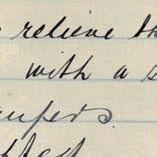 relieve th
with a s
aupers.